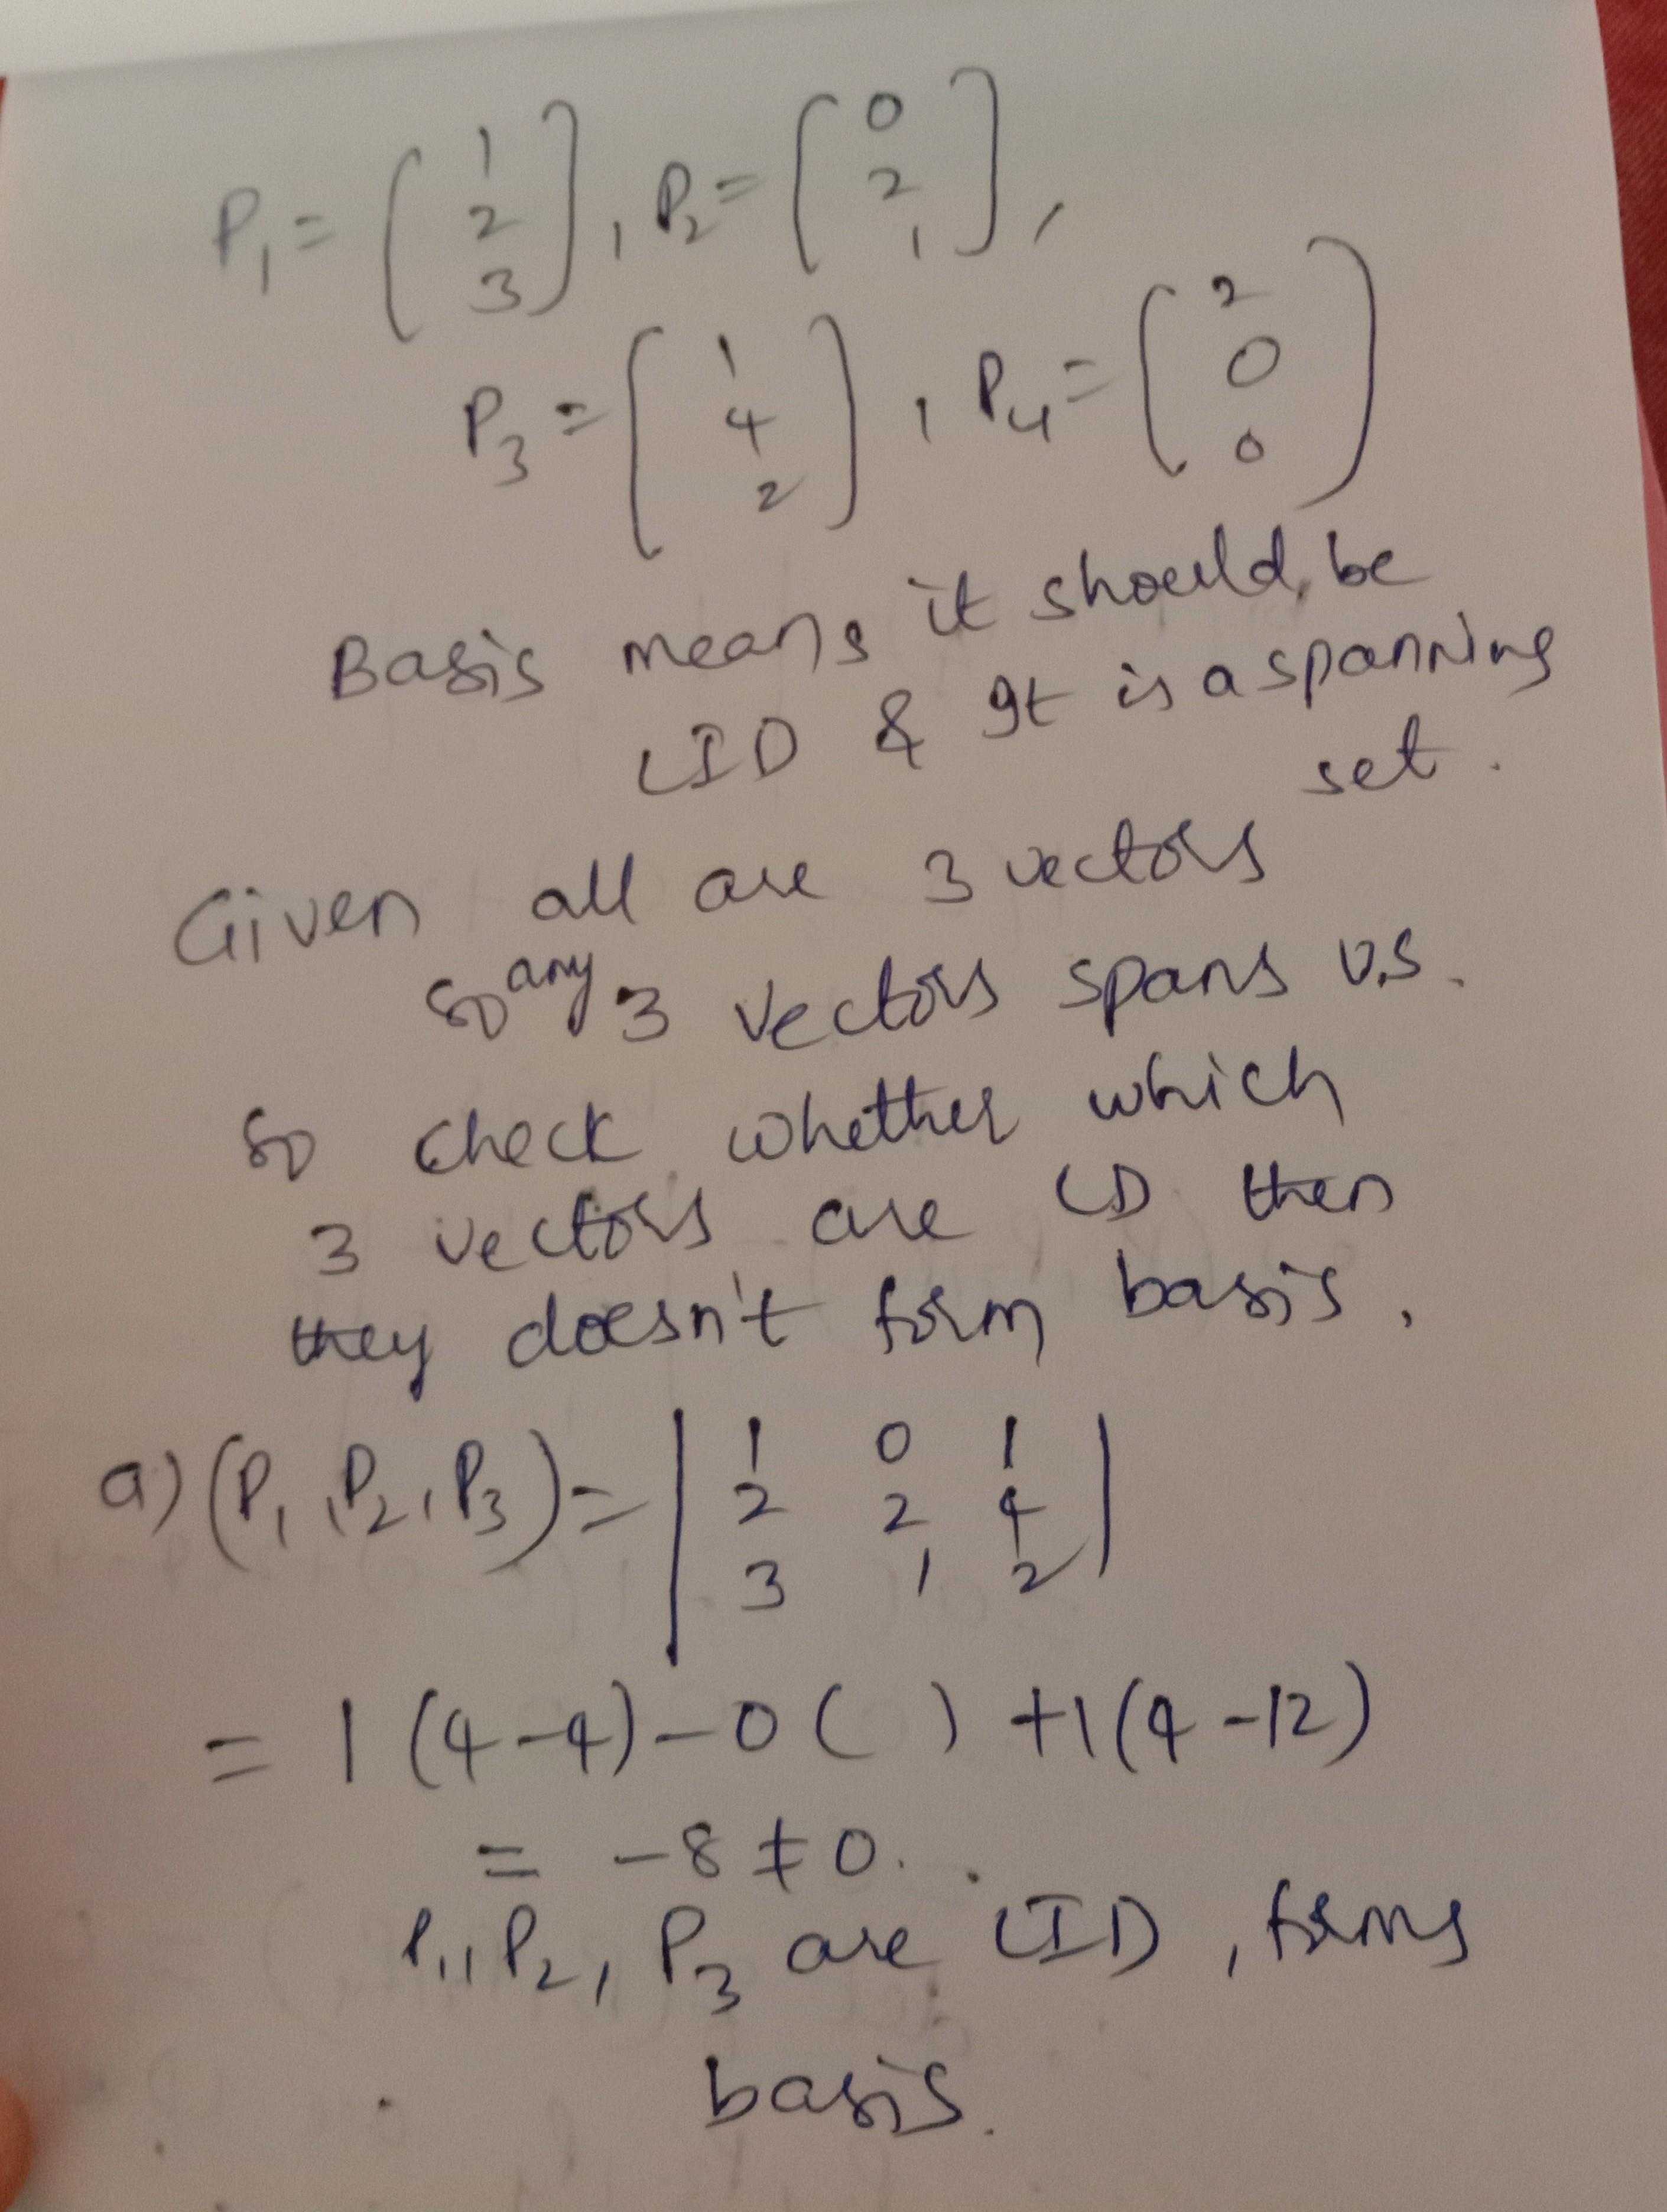 P₁ = [1 2 3], P₂ = [0 2 1],
P₃ = [1 4 2], P₄ = [2 0 0]
Basis means it should be
LID & It is a spanning
set.
Given all are 3 vectors
so any 3 vectors spans v.s.
So check whether which
3 vectors are LD then
they doesn't form basis.
a) (P₁, P₂, P₃) = | 1 0 1
2 2 4
3 1 2 |
= 1 (4-4) - 0 ( ) + 1 (4-12)
= -8 ≠ 0.
P₁, P₂, P₃ are LID, forms
basis.